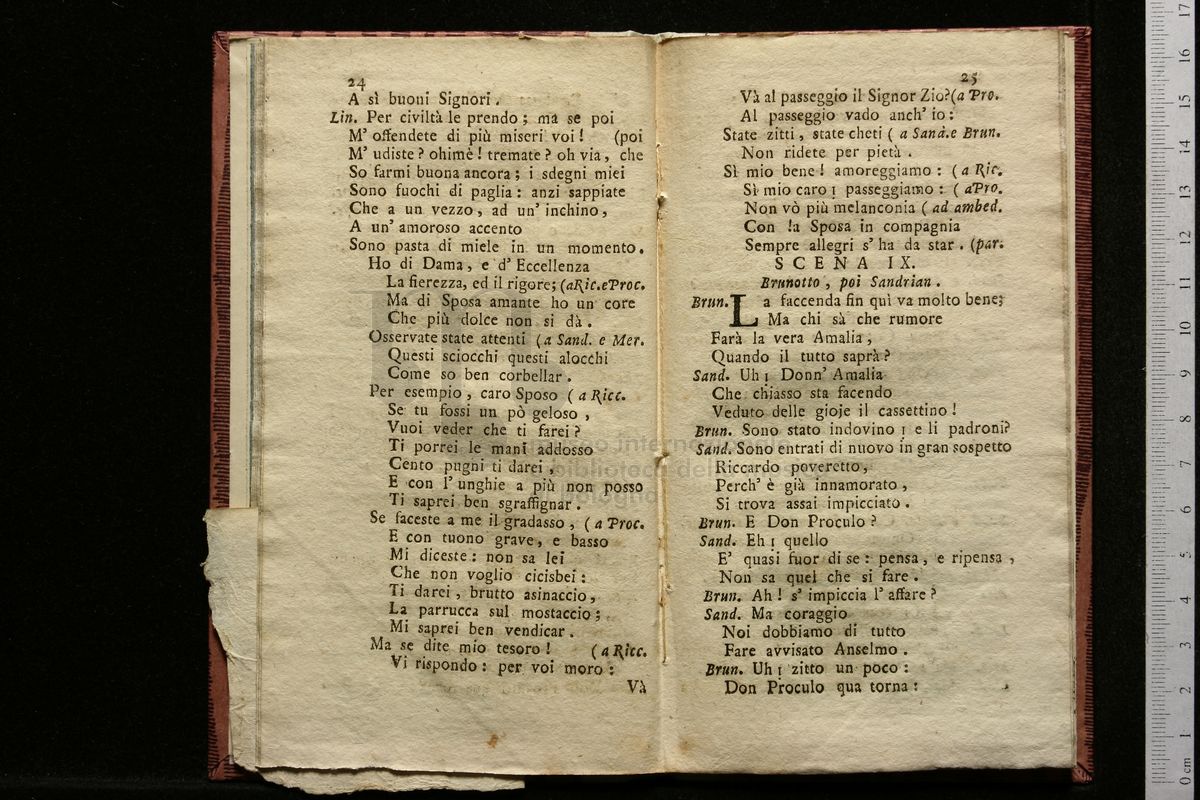 24
A sì buoni Signori.
Lin. Per civiltà le prendo; ma se poi
M' offendete di più miseri voi! (poi
M' udiste? ohimè! tremate? oh via, che
So farmi buona ancora; i sdegni miei
Sono fuochi di paglia: anzi sappiate
Che a un vezzo, ad un' inchino,
A un' amoroso accento
Sono pasta di miele in un momento.
Ho di Dama, e d' Eccellenza
La fierezza, ed il rigore; (a Ric. e Proc.
Ma di Sposa amante ho un core
Che più dolce non si dà.
Osservate state attenti (a Sand. e Mer.
Questi sciocchi questi alocchi
Come so ben corbellar.
Per esempio, caro Sposo (a Ricc.
Se tu fossi un pò geloso,
Vuoi veder che ti farei?
Ti porrei le mani addosso
Cento pugni ti darei,
E con l' unghie a più non posso
Ti saprei ben sgraffignar.
Se faceste a me il gradasso, (a Proc.
E con tuono grave, e basso
Mi diceste: non sa lei
Che non voglio cicisbei:
Ti darei, brutto asinaccio,
La parrucca sul mostaccio;
Mi saprei ben vendicar.
Ma se dite mio tesoro! (a Ricc.
Vi rispondo: per voi moro:
Và
25
Và al passeggio il Signor Zio? (a Pro.
Al passeggio vado anch' io:
State zitti, state cheti (a Sand. e Brun.
Non ridete per pietà.
Sì mio bene! amoreggiamo: (a Ric.
Sì mio caro! passeggiamo: (a Pro.
Non vò più melanconia (ad ambed.
Con la Sposa in compagnia
Sempre allegri s' ha da star. (par.
SCENA IX.
Brunotto, poi Sandrian.
Brun. La faccenda fin quì va molto bene;
Ma chi sà che rumore
Farà la vera Amalia,
Quando il tutto saprà?
Sand. Uh! Donn' Amalia
Che chiasso sta facendo
Veduto delle gioje il cassettino!
Brun. Sono stato indovino! e li padroni?
Sand. Sono entrati di nuovo in gran sospetto
Riccardo poveretto,
Perch' è già innamorato,
Si trova assai impicciato.
Brun. E Don Proculo?
Sand. Eh! quello
E' quasi fuor di se: pensa, e ripensa,
Non sa quel che si fare.
Brun. Ah! s' impiccia l' affare?
Sand. Ma coraggio
Noi dobbiamo di tutto
Fare avvisato Anselmo.
Brun. Uh! zitto un poco:
Don Proculo qua torna:
museo internazionale
biblioteca della
bologna
0 cm 1 2 3 4 5 6 7 8 9 10 11 12 13 14 15 16 17